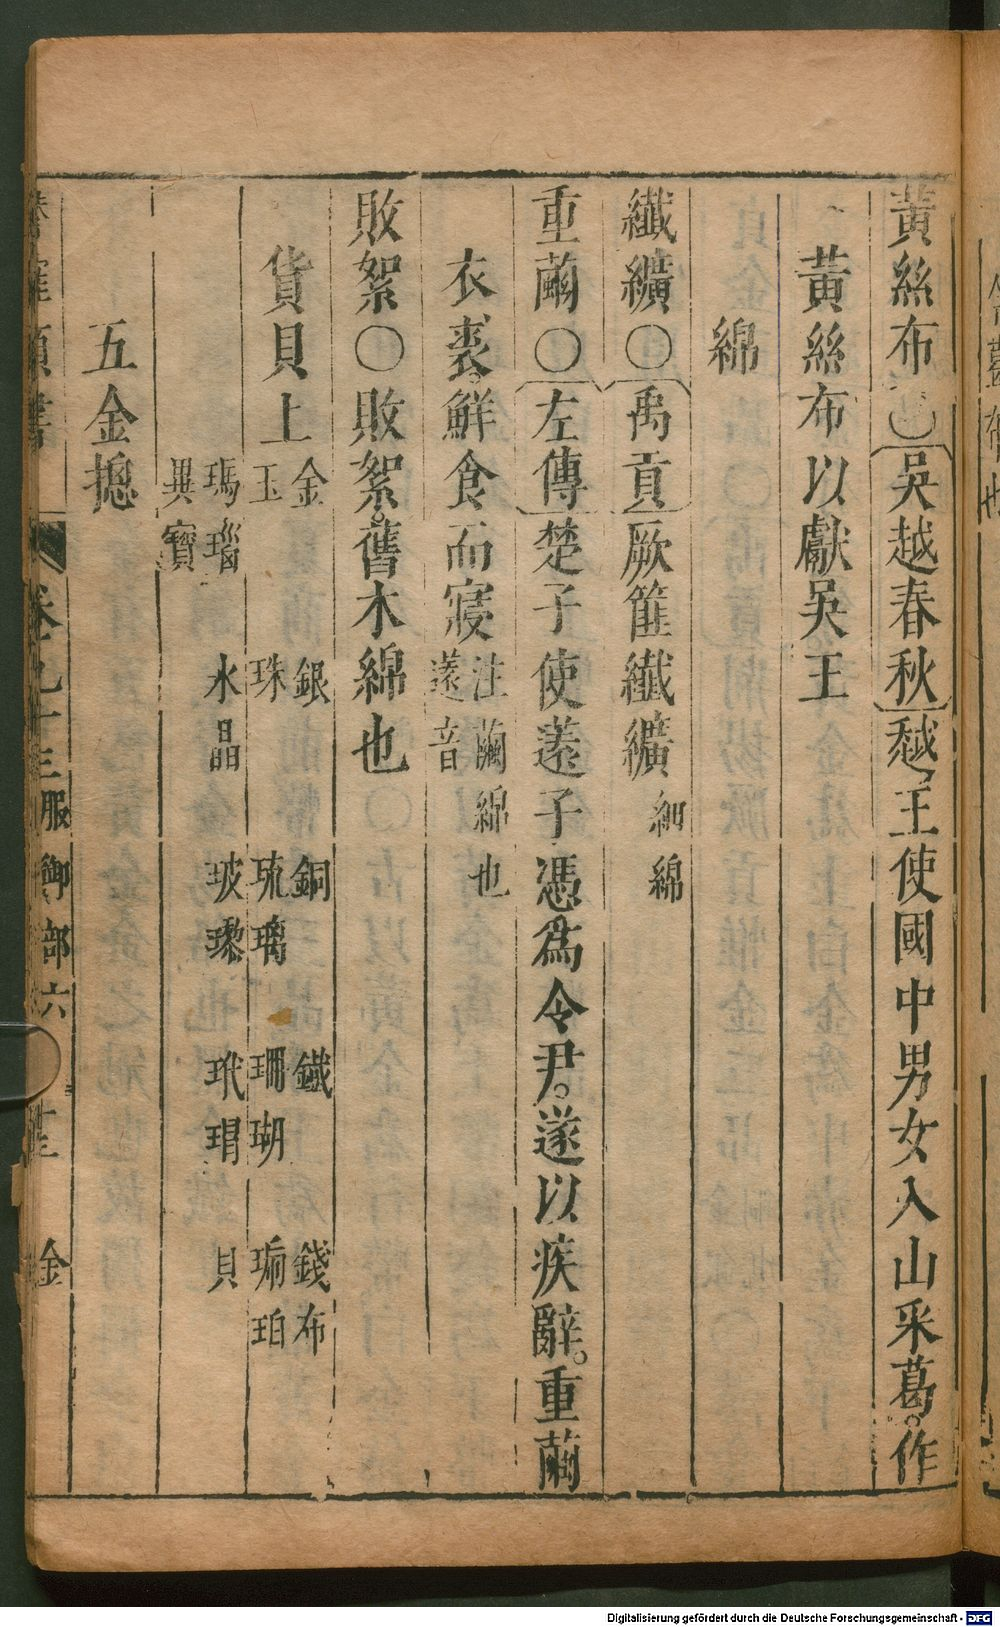 黃絲布○吳越春秋越王使國中男女入山采葛。作
黃絲布以獻吳王
綿
纖纊○禹貢厥篚纖纊細綿
重繭○左傳楚子使薳子馮爲令尹。遂以疾辭。重繭
衣裘。鮮食而寢注繭綿也
薳音
敗絮○敗絮。舊木綿也
貨貝上
金 銀 銅 鐵 錢布
玉 珠 琉璃 珊瑚 琥珀
瑪瑙 水晶 玻瓈 玳瑁 貝
異寶
五金摠
類書 卷九十三服御部六 金
Digitalisierung gefördert durch die Deutsche Forschungsgemeinschaft - DFG